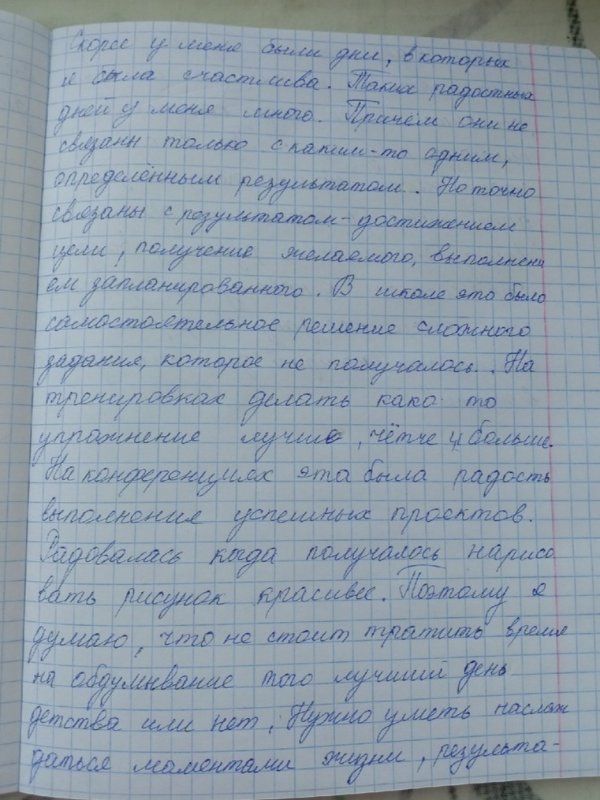 Скорее у меня были дни, в которых
я была счастлива. Таких радостных
дней у меня много. Причём они не
связанн только с каким-то одним,
определённым результатом. Но точно
связаны с результатом-достижением
цели, получение желаемого, выполнени
ем запланированного. В школе это было
самостоятельное решение сложного
задания, которое не получалось. На
тренировках делать како то
упражнение лучше, чётче и больше.
На конференциях эта была радость
выполнение успешных проектов.
Радовалась кыда получалось нарисо
вать рисунок красивее. Поэтому я
думаю, что не стоит тратить время
на обдумывание того лучший день
детства или нет, Нужно уметь наслаж
даться моментами жизни, результа-